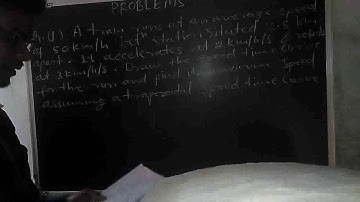 PROBLEMS
Q.(1) A train runs at an average speed
of 50 km/h stations situated 5 km
apart. It accelerates at 2 km/h/s & retards
at 3 km/h/s Draw the speed time curve
for the run and find maximum speed
assuming a trapezoidal speed time curve